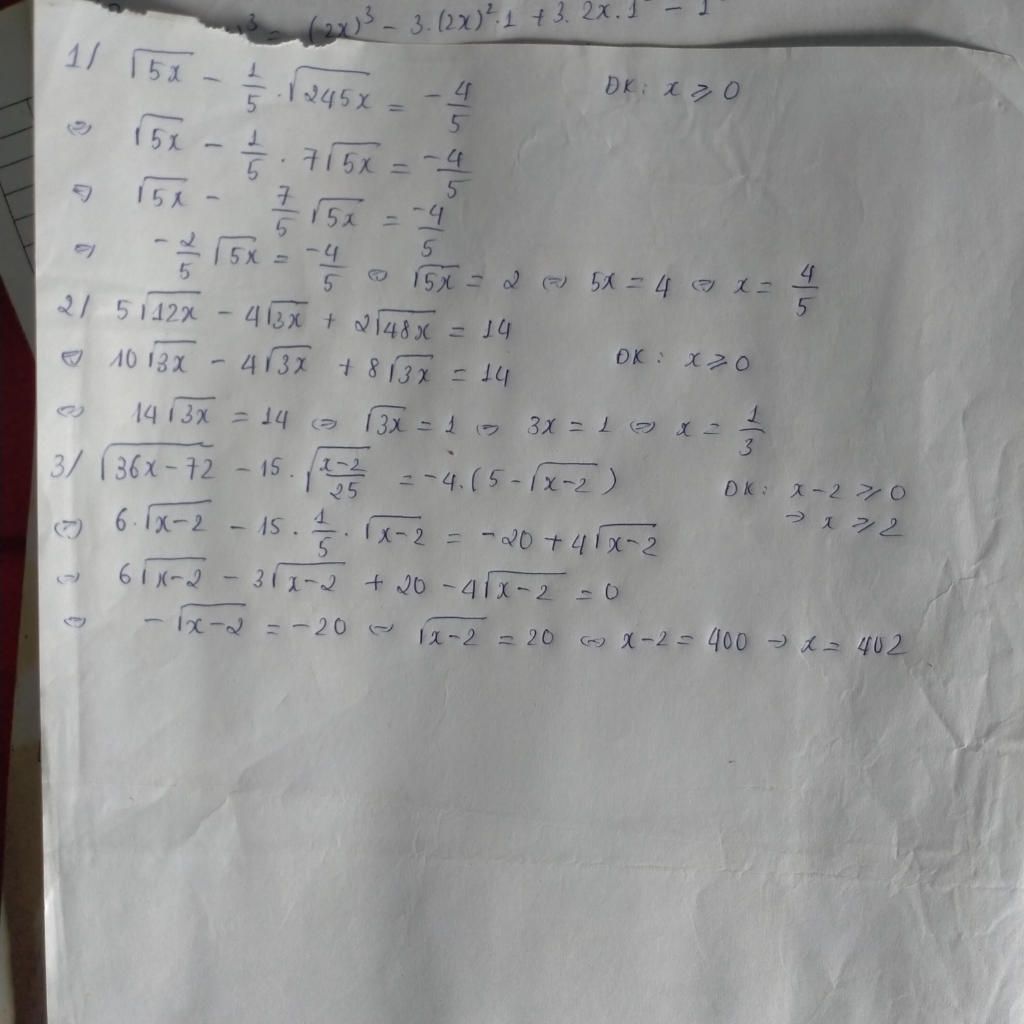 ³ = (2x)³ - 3.(2x)².1 + 3.2x.1 - 1
1/ √(5x) - 1/5 . √(245x) = -4/5 ĐK: x ⩾ 0
⇔ √(5x) - 1/5 . 7√(5x) = -4/5
⇔ √(5x) - 7/5 √(5x) = -4/5
⇔ -2/5 √(5x) = -4/5 ⇔ √(5x) = 2 ⇔ 5x = 4 ⇔ x = 4/5
2/ 5√(12x) - 4√(3x) + 2√(48x) = 14
⇔ 10√(3x) - 4√(3x) + 8√(3x) = 14 ĐK: x ⩾ 0
⇔ 14√(3x) = 14 ⇔ √(3x) = 1 ⇔ 3x = 1 ⇔ x = 1/3
3/ √(36x-72) - 15.√((x-2)/25) = -4.(5-√(x-2)) ĐK: x-2 ⩾ 0
⇒ x ⩾ 2
⇔ 6.√(x-2) - 15 . 1/5 . √(x-2) = -20 + 4√(x-2)
⇔ 6√(x-2) - 3√(x-2) + 20 - 4√(x-2) = 0
⇔ -√(x-2) = -20 ⇔ √(x-2) = 20 ⇔ x-2 = 400 → x = 402